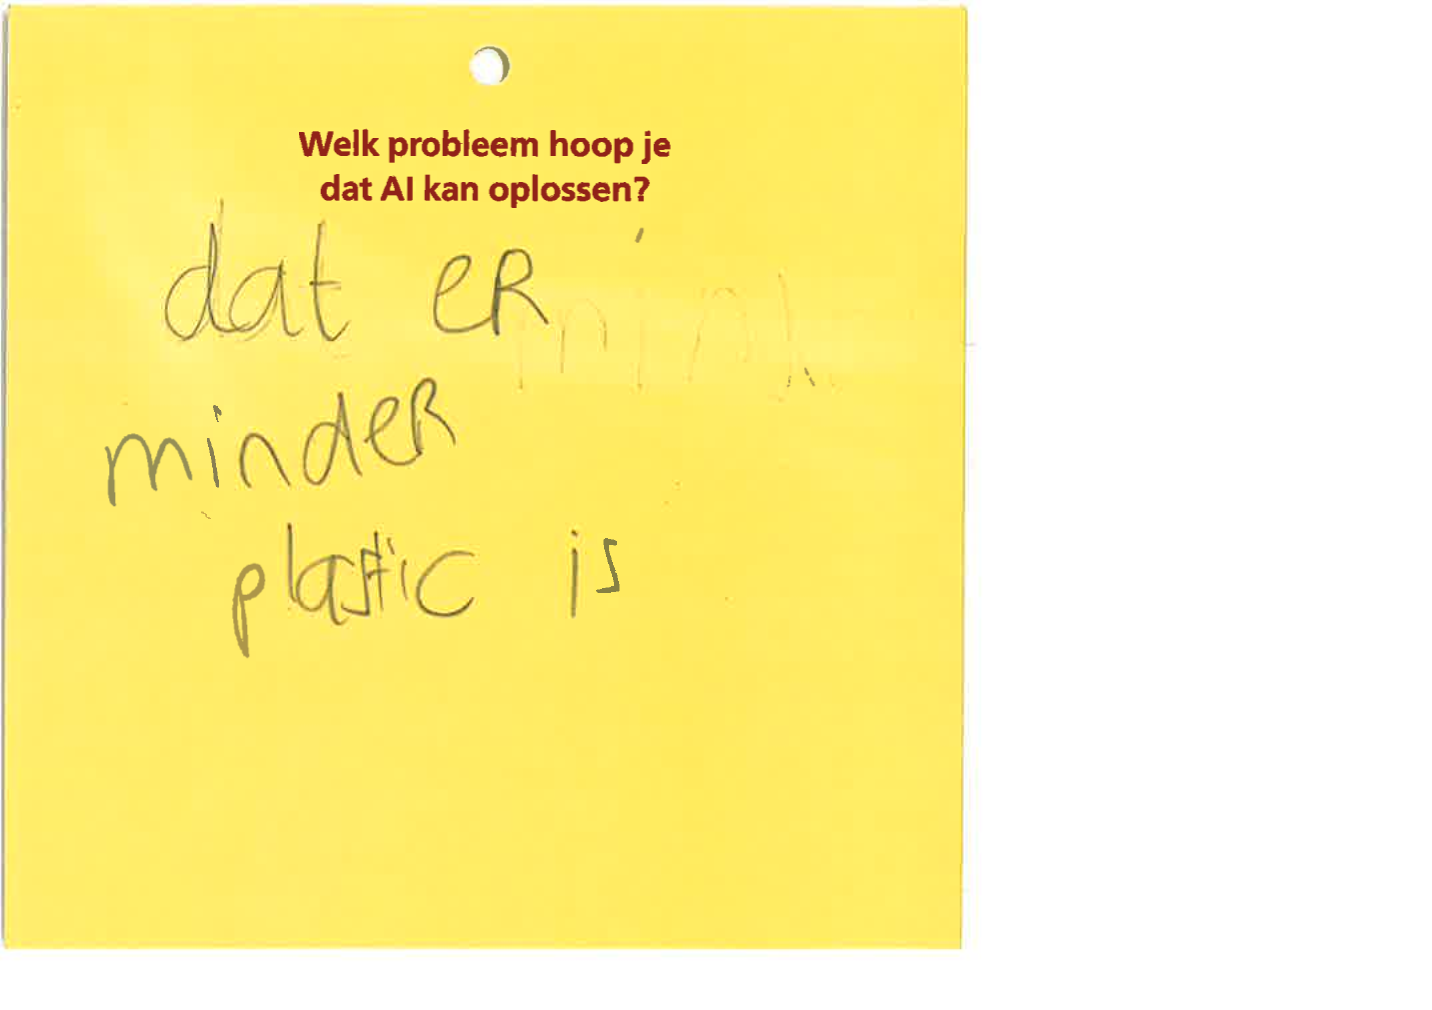 Welk probleem hoop je
dat AI kan oplossen?
dat eR
mindeR
plastic is